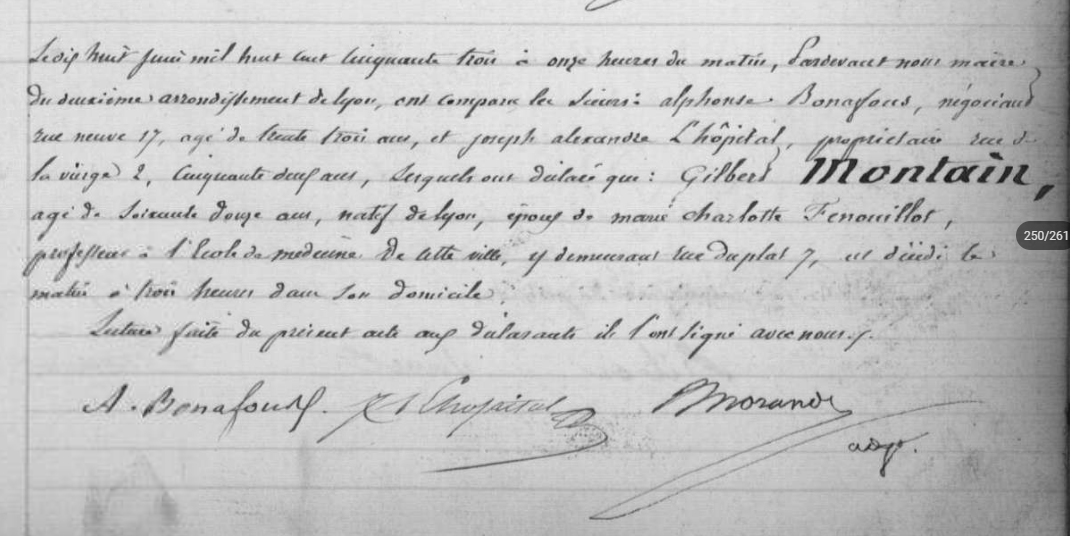 Le dix huit juin mil huit cent cinquante trois à onze heures du matin, Pardevant nous maire
du deuxième arrondissement de lyon, ont comparu les sieurs: alphonse Bonafous, négociant
rue neuve 17, agé de trente trois ans, et joseph alexandre L'hôpital, propriétaire rue de
la vierge 2, cinquante deux ans, lesquels ont déclaré que: Gilbert Montain,
agé de soixante douze ans, natif de lyon, époux de marie charlotte Fenouillot,
professeur à l'Ecole de medecine de cette ville, y demeurant rue du plat 7, est décédé ce
matin à trois heures dans son domicile
Lecture faite du présent acte aux déclarants ils l'ont signé avec nous.
A. Bonafous L'hopital Morand
adjt.
250/261